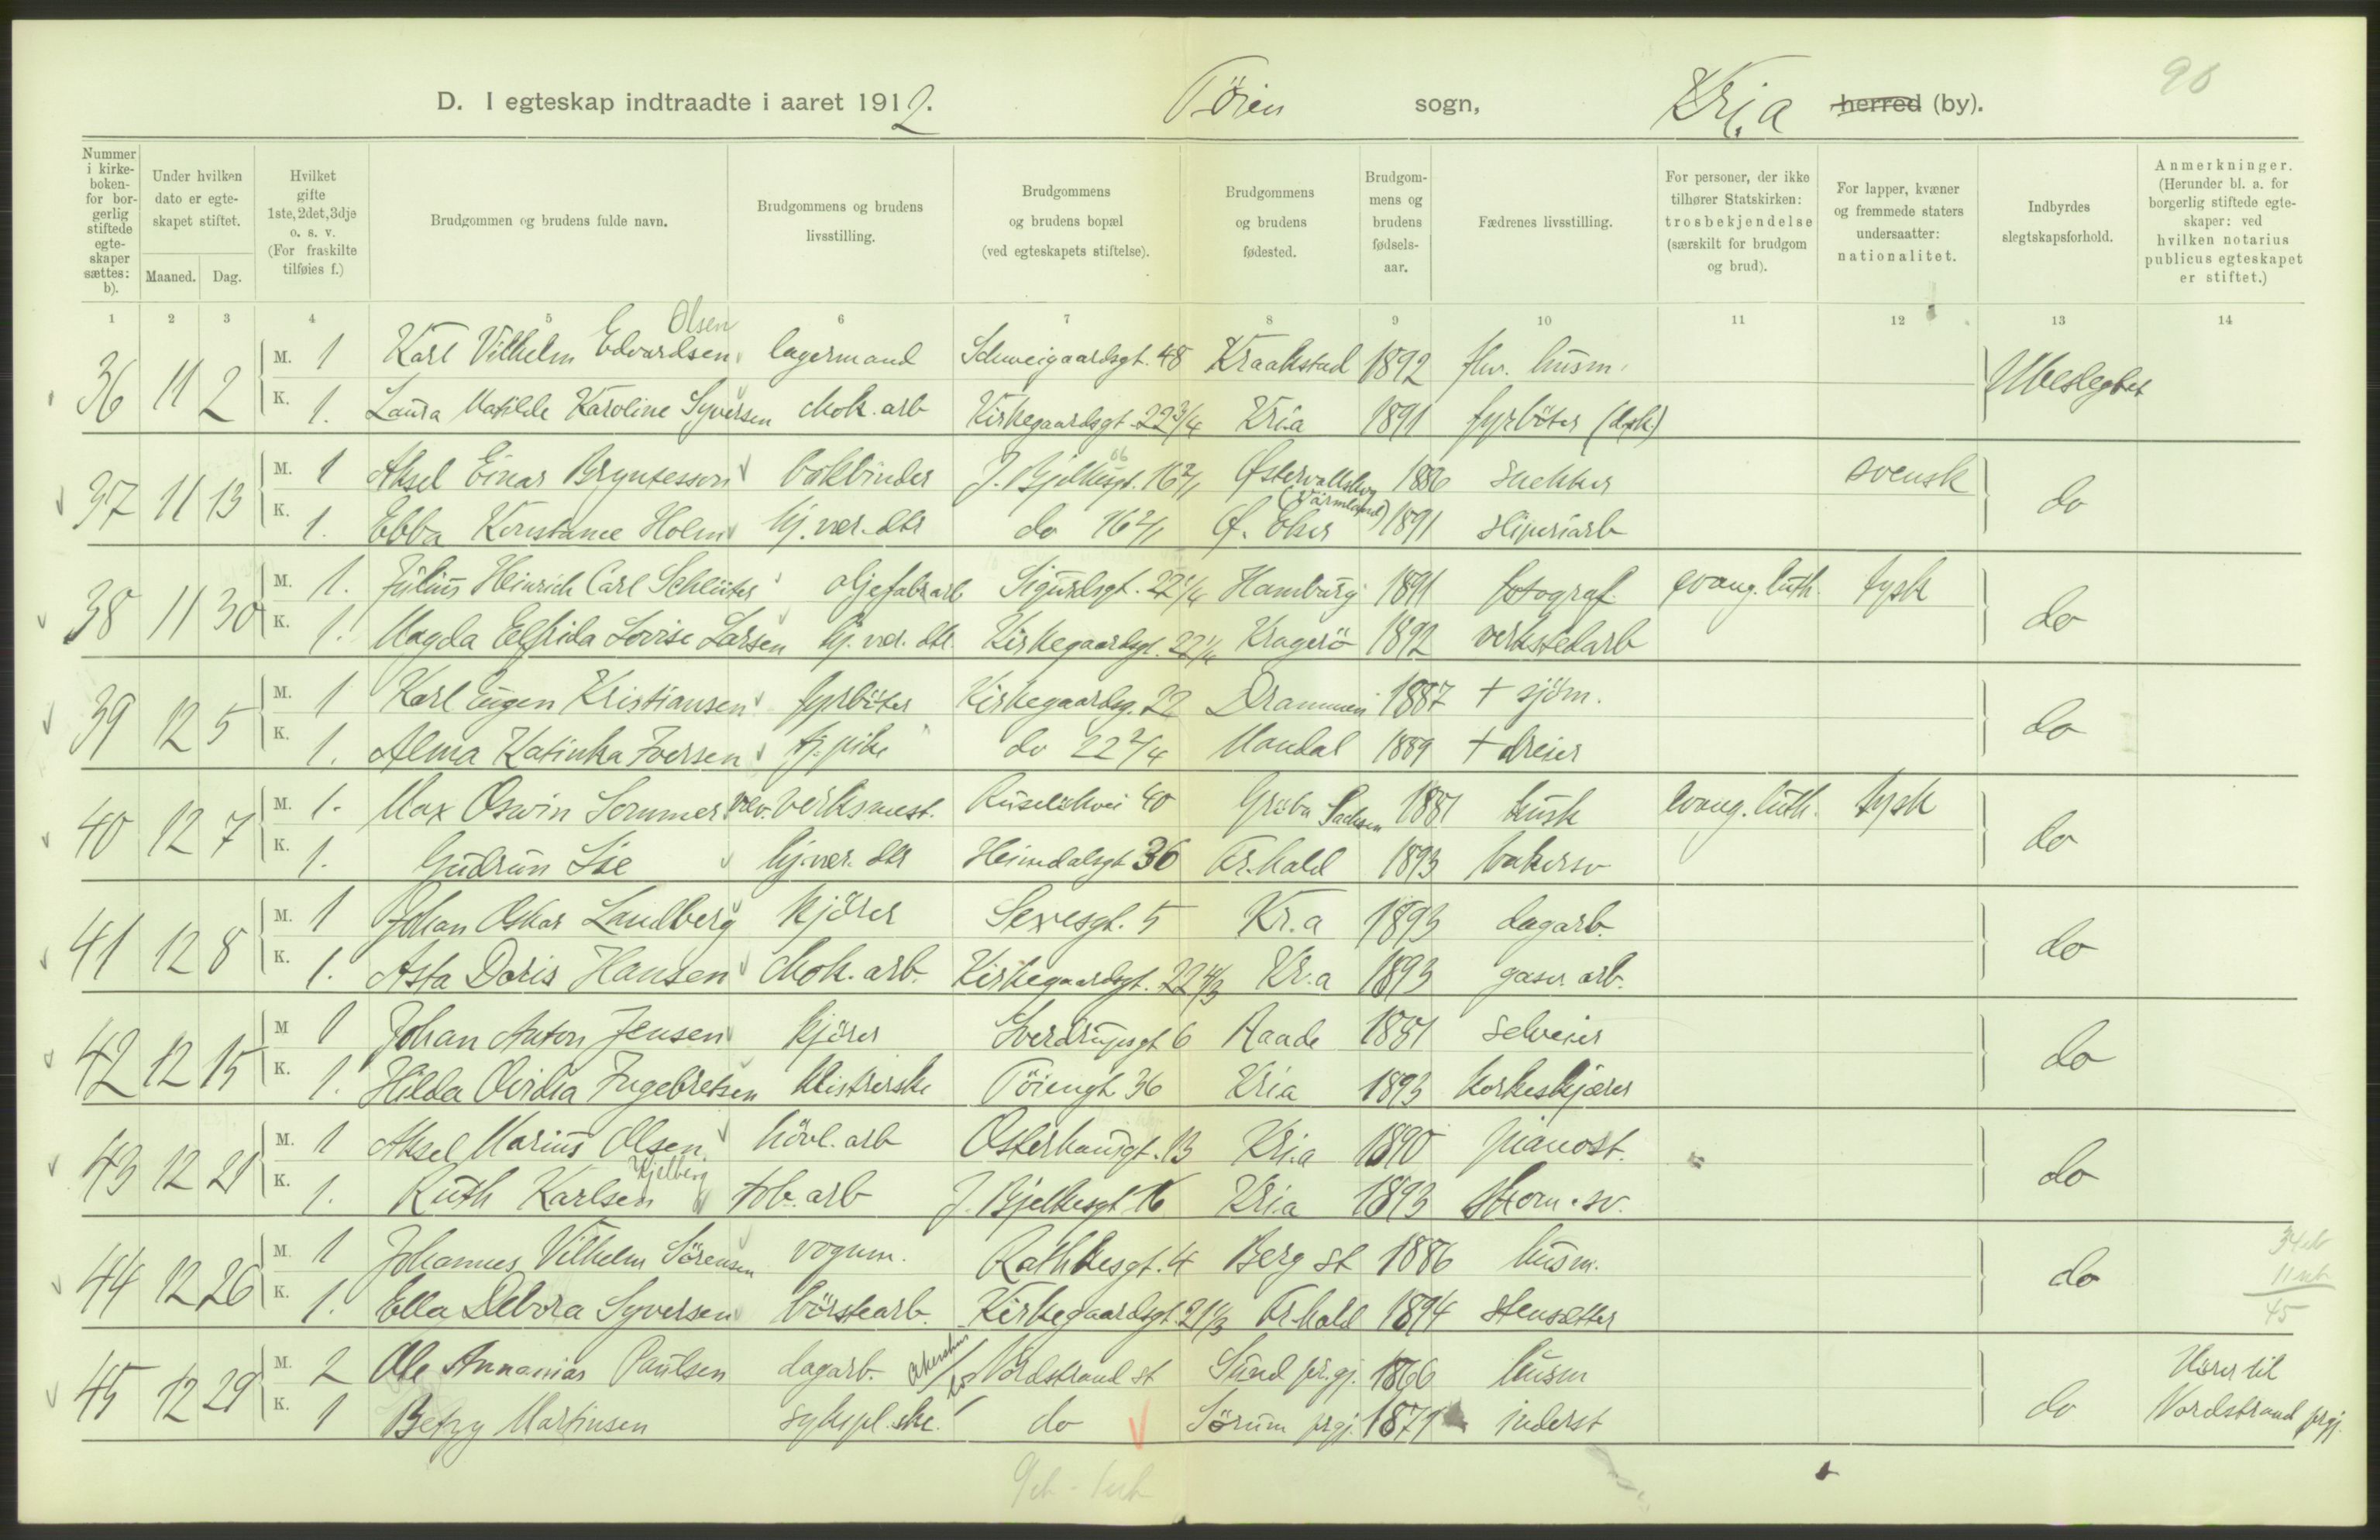 90
D. I egteskap indtraadte i aaret 1912. Töien sogn, Kr.a herred (by).
Nummer i kirkeboken- for borgerlig stiftede egteskaper sættes: b).
Under hvilken dato er egteskapet stiftet.
Maaned. Dag.
Hvilket gifte 1ste, 2det, 3dje o. s. v. (For fraskilte tilføies f.)
Brudgommen og brudens fulde navn.
Brudgommens og brudens livsstilling.
Brudgommens og brudens bopæl (ved egteskapets stiftelse).
Brudgommens og brudens fødested.
Brudgommens og brudens fødselsaar.
Fædrenes livsstilling.
For personer, der ikke tilhører Statskirken: trosbekjendelse (særskilt for brudgom og brud).
For lapper, kvæner og fremmede staters undersaatter: nationalitet.
Indbyrdes slegtskapsforhold.
Anmerkninger. (Herunder bl. a. for borgerlig stiftede egteskaper: ved hvilken notarius publicus egteskapet er stiftet.)
1 2 3 4 5 6 7 8 9 10 11 12 13 14
Olsen
36 11 2 M. 1 Karl Vilhelm Edvardsen lagermand Schweigaardsgt. 48 Kraakstad 1892 fhv. husm. Ubeslegtet
K. 1. Laura Matilde Karoline Syversen chok. arb Kirkegaardsgt. 22 3/4 Kria 1891 fyrböter
37 11 13 M. 1 Aksel Einar Bryntesson bokbinder J. Bjelkesgt. 16 2/1 Østervallskog (Värmland) 1886 snekker svensk do
K. 1. Ebba Konstance Holm hj. vær. dtr do 16 2/1 Ø. Eker 1891 sliperiarb
38 11 30 M. 1. Julius Heinrich Carl Schlüter oljefabr arb Sigurdsgt. 22 1/4 Hamburg 1891 fotograf evang. luth. tysk do
K. 1. Magda Elfrida Lovise Larsen hj. vær. dtr. Kirkegaardsgt. 22 1/4 Kragerö 1892 verkstedarb
39 12 5 M. 1 Karl Eugen Kristiansen fyrböter Kirkegaardsg. 22 Drammen 1887 + sjöm. do
K. 1. Alma Katinka Iversen tj. pike do 22 2/4 Mandal 1889 + dreier
40 12 7 M. 1. Max Oswin Sommer væv. verksmest. Ruselökvei 40 Gröba Sachsen 1881 kusk evang. luth. tysk do
K. 1. Gudrun Lie hj. vær. dtr Heimdalsgt 36 Fr.hald 1893 bakersv
41 12 8 M. 1 Johan Oskar Landberg kjörer Sexesgt. 5 Kr.a 1893 dagarb. do
K. 1. Asta Doris Hansen chok. arb. Kirkegaardsgt. 22 4/3 Kr.a 1893 gasv. arb.
42 12 15 M 1 Johan Anton Jensen kjörer Sverdrupsgt 6 Raade 1881 selveier do
K. 1. Hilda Ovidia Ingebretsen klistrerske Töiengt 36 Kria 1893 korkeskjærer
43 12 21 M. 1 Aksel Marius Olsen hövl. arb Osterhausgt. 13 Kri.a 1890 pianost. do
Kjelberg
K. 1. Ruth Karlsen tob. arb J. Bjelkesgt 16 Kria 1893 skom. sv.
44 12 26 M. 1 Johannes Vilhelm Sörensen vognm. Rathkesgt. 4 Berg st 1886 husm. do
K. 1. Ella Debora Syversen börstearb. Kirkegaardsgt. 21 1/3 Fr.hald 1894 stensætter
34 eb
11 ub
45
45 12 29 M. 2 Ole Annanias Paulsen dagarb. Akershus Nordstrand st Sund pr.gj. 1866 husm do Hörer til
K. 1 Betzy Martinsen sykepl.ske. do Sörum prgj. 1871 inderst Nordstrand prgj.